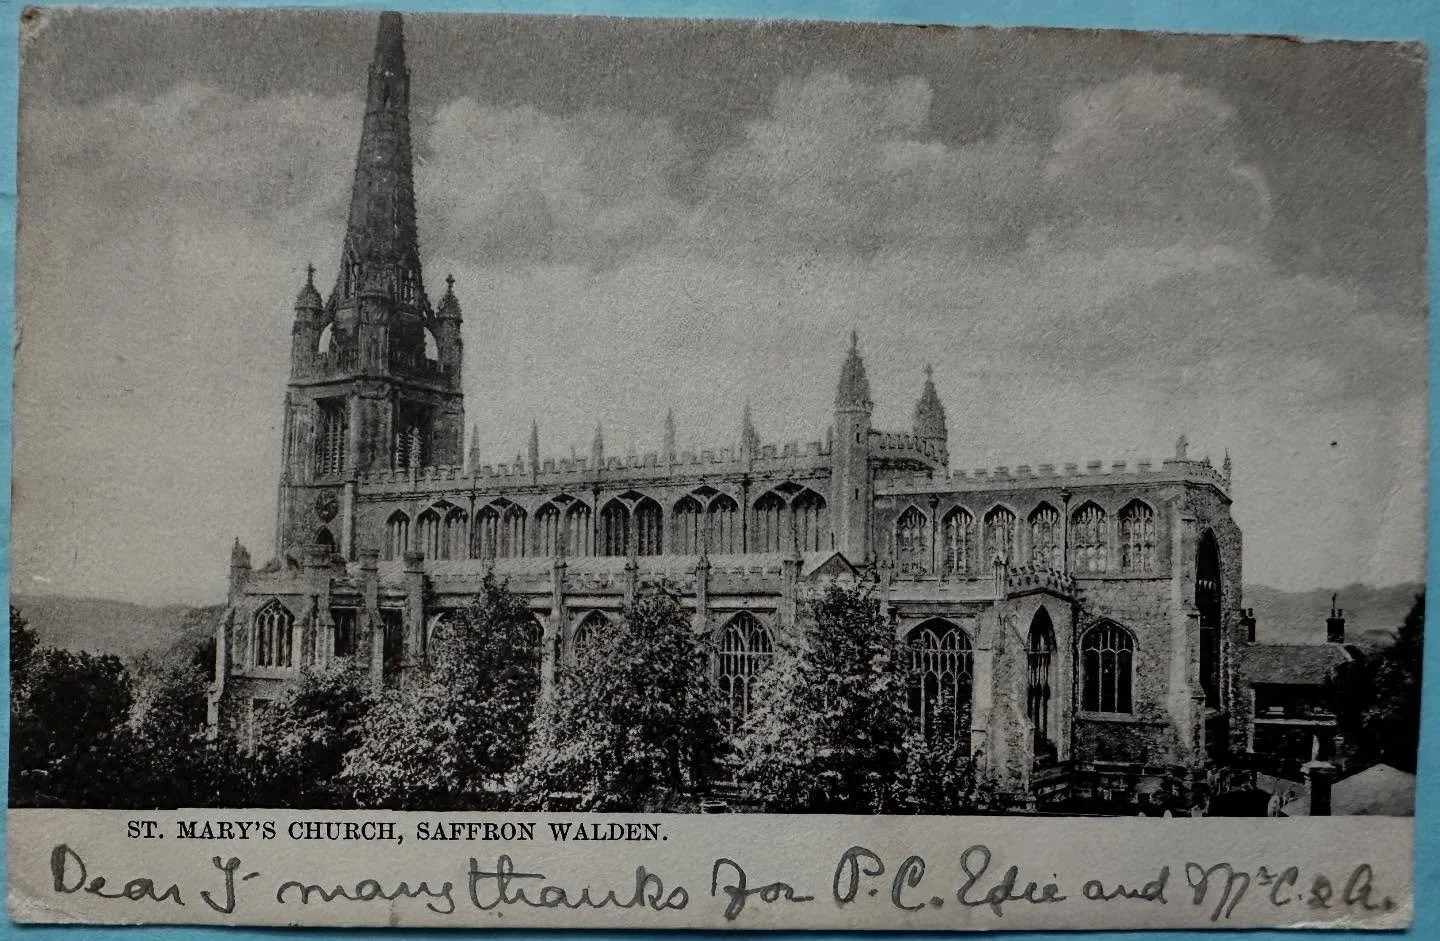 ST. MARY'S CHURCH, SAFFRON WALDEN.
Dear J- many thanks for P.C. Edie and Mrs C. & A.